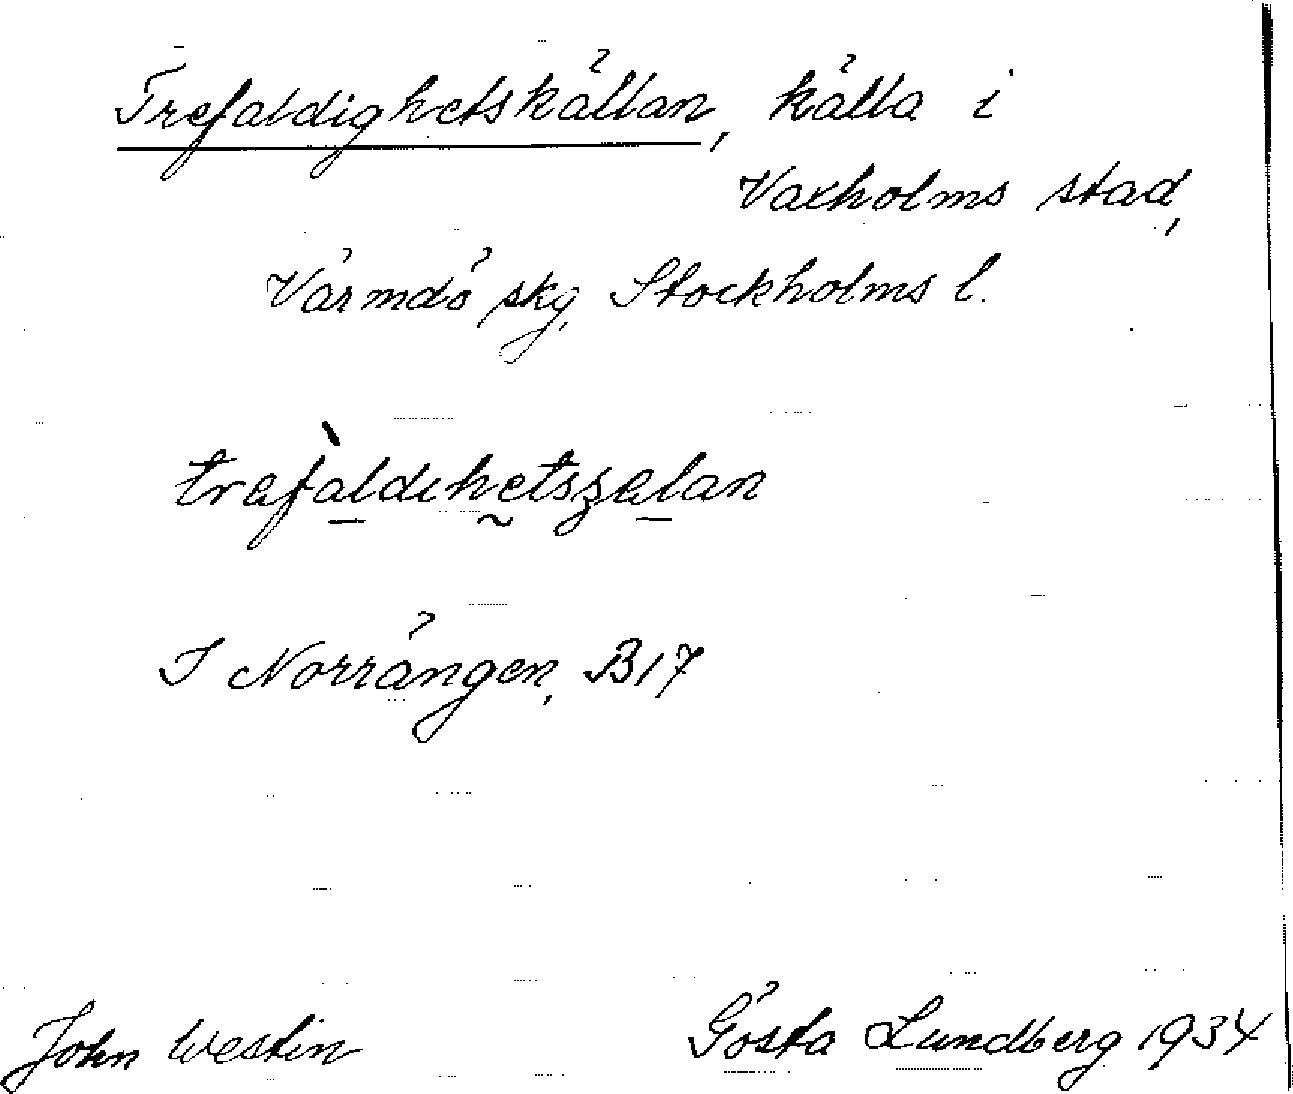 Trefaldighetskällan, källa i
Vaxholms stad,
Värmdö skg, Stockholms l.
trefàldehetsʒalan
I Norrängen, B17
John Westin Gösta Lundberg 1934